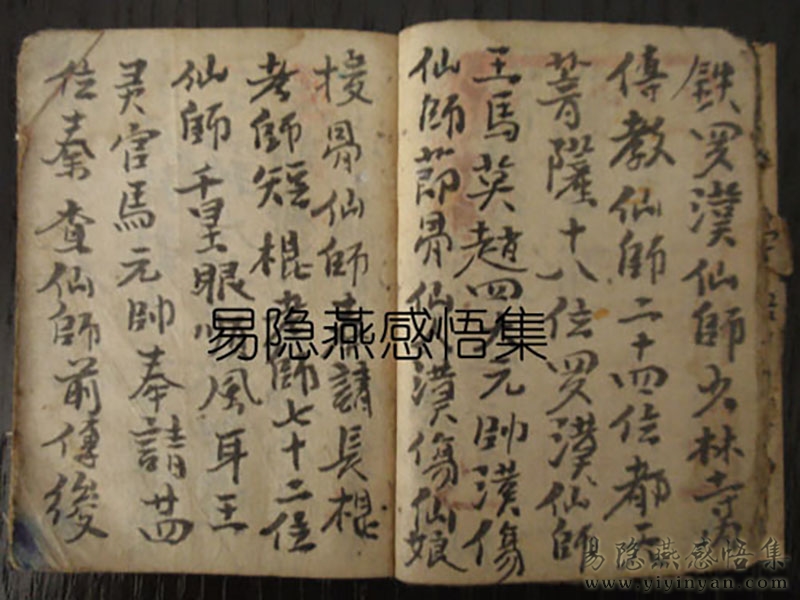 鉄罗漢仙師少林寺
傳教仙師二十四位都
菩薩十八位罗漢仙師
王馬英趙四元帥漢傷
仙師節骨仙漢傷仙娘
接骨仙師奉請長棍
老師短棍老師七十二位
仙師千里眼順風耳王
灵官馬元帥奉請廿四
位秦查仙師前傳後
易隐燕感悟集
易隐燕感悟集
www.yiyinyan.com